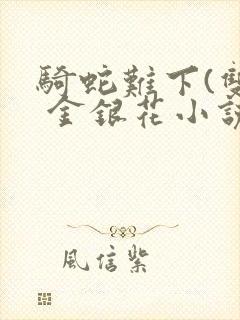 騎蛇難下(雙
金銀花小說
風信紫